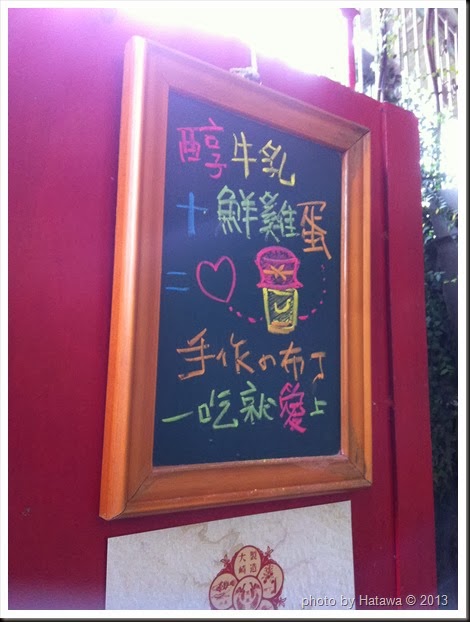 醇牛乳
+鮮雞蛋
=
手作の布丁
一吃就愛上
大製
崎造
photo by Hatawa © 2013